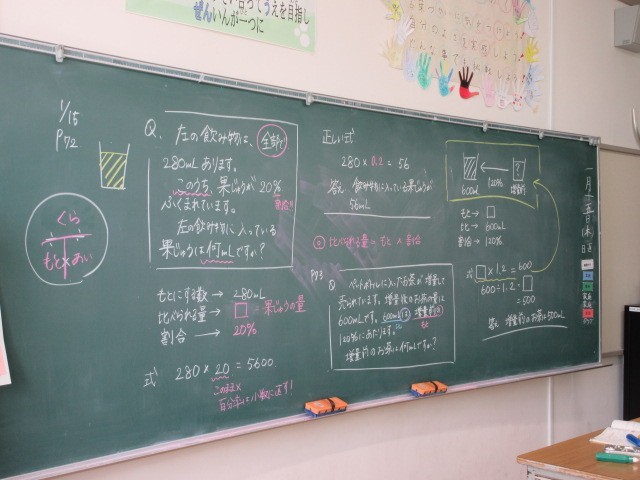 えを目指し
ぜんいんが一つに
1/15
P72
くら
もと×わりあい
Q. 左の飲み物は、全部で
280mLあります。
このうち、果じゅうが20%
ふくまれています。
左の飲み物に入っている
果じゅうは何mLですか?
もとにする数 → 280mL
比べられる量 → □ = 果じゅうの量
割合 → 20%
式 280×20=5600
このまま×
百分率は小数に直す!
正しい式
280×0.2=56
答え 飲み物に入っている果じゅうが
56mL
◎比べられる量=もと×割合
P73
Q ペットボトルに入ったお茶が増量して
売られています。増量後のお茶の量は
600mLで、600mLは増量前の
120%にあたります。
増量前のお茶は何mLですか?
600mL
120%
増量前
もと→ □
比→ 600mL
割合→ 120%
式 □×1.2=600
600÷1.2=□
=500
答え 増量前のお茶は500mL
一月
日
(木)
日直